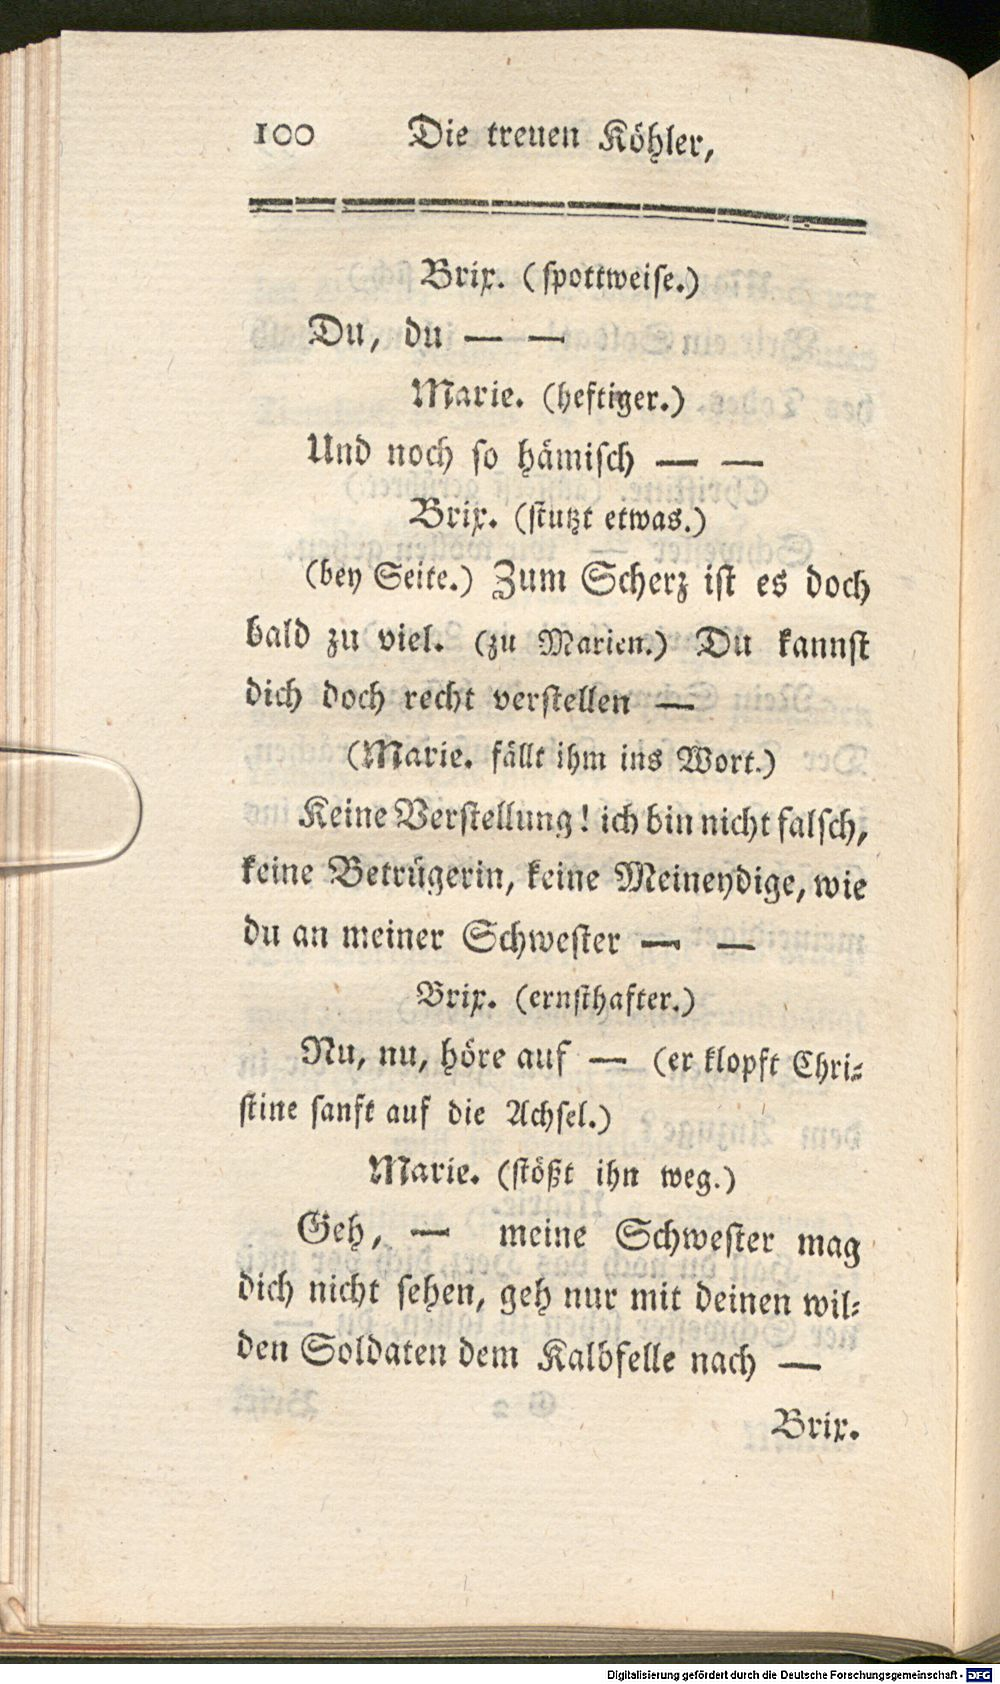 100 Die treuen Köhler,
Brix. (spottweise.)
Du, du — —
Marie. (heftiger.)
Und noch so hämisch — —
Brix. (stutzt etwas.)
(bey Seite.) Zum Scherz ist es doch
bald zu viel. (zu Marien.) Du kannst
dich doch recht verstellen —
(Marie. fällt ihm ins Wort.)
Keine Verstellung! ich bin nicht falsch,
keine Betrügerin, keine Meineydige, wie
du an meiner Schwester — —
Brix. (ernsthafter.)
Nu, nu, höre auf — (er klopft Chri-
stine sanft auf die Achsel.)
Marie. (stößt ihn weg.)
Geh, — meine Schwester mag
dich nicht sehen, geh nur mit deinen wil-
den Soldaten dem Kalbfelle nach —
Brix.
Digitalisierung gefördert durch die Deutsche Forschungsgemeinschaft - DFG